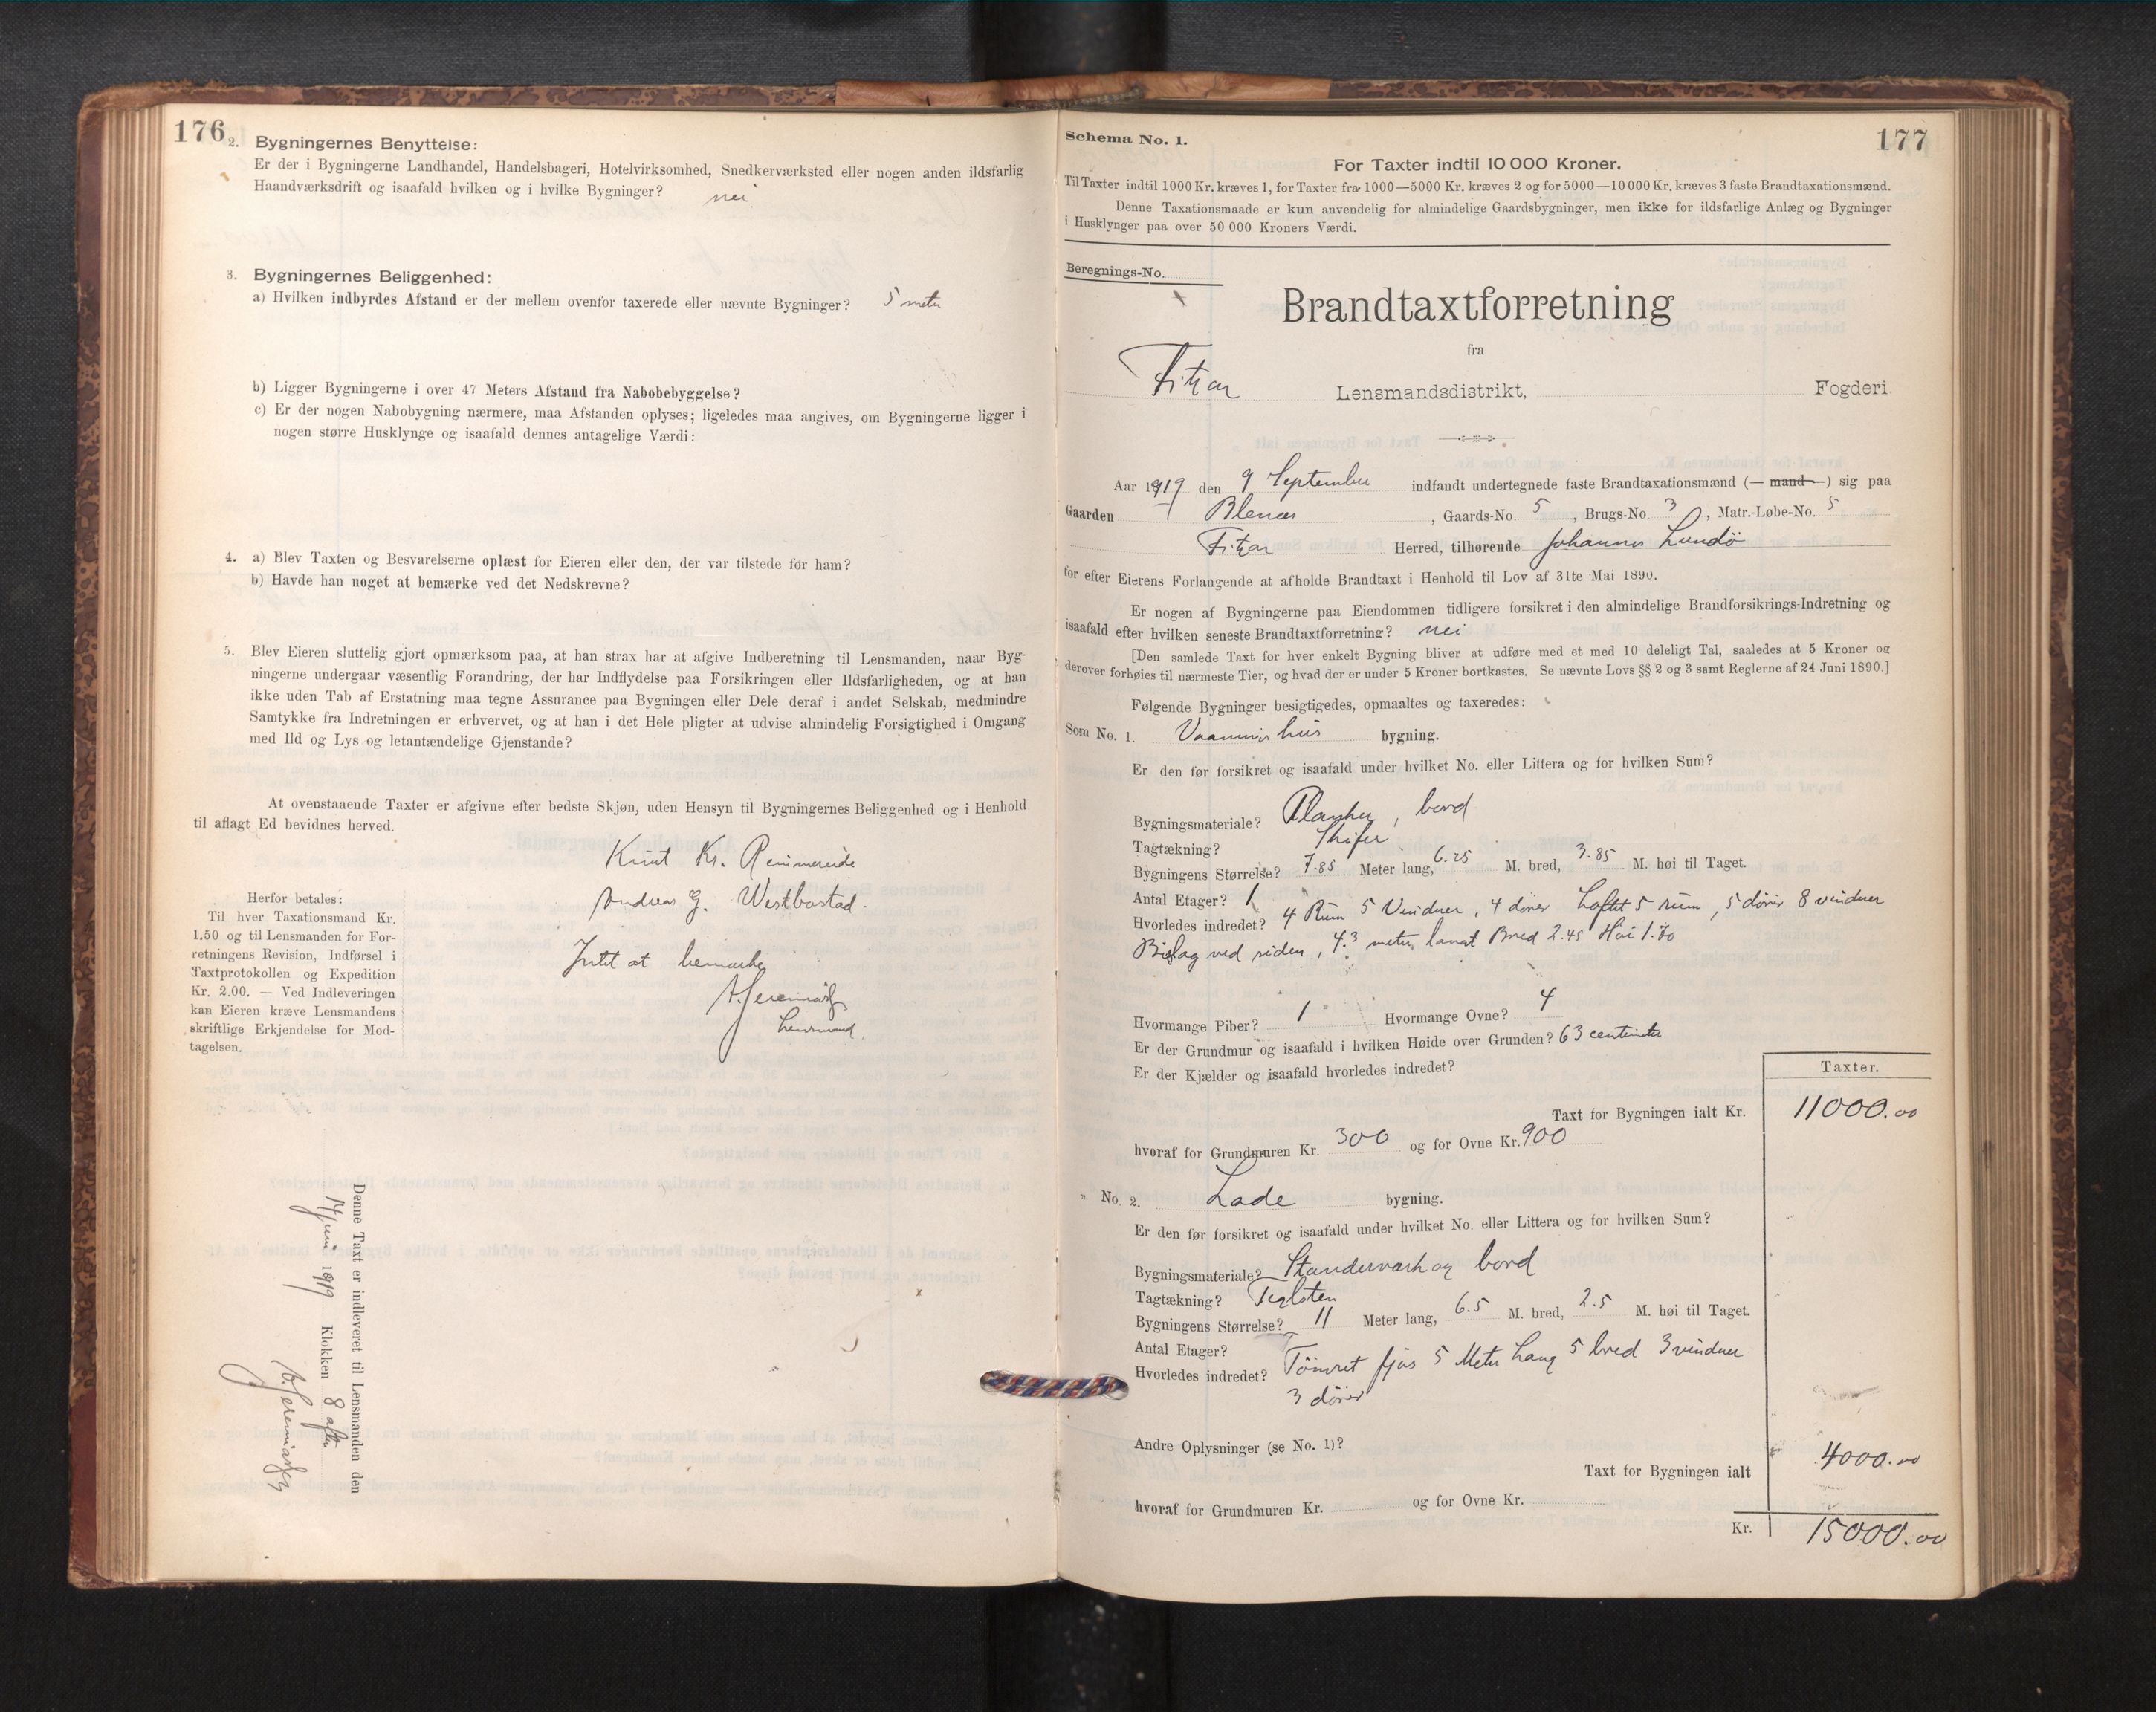 176
2. Bygningernes Benyttelse:
Er der i Bygningerne Landhandel, Handelsbageri, Hotelvirksomhed, Snedkerværksted eller nogen anden ildsfarlig
Haandværksdrift og isaafald hvilken og i hvilke Bygninger? nei
3. Bygningernes Beliggenhed:
a) Hvilken indbyrdes Afstand er der mellem ovenfor taxerede eller nævnte Bygninger? 5 meter
b) Ligger Bygningerne i over 47 Meters Afstand fra Nabobebyggelse?
c) Er der nogen Nabobygning nærmere, maa Afstanden oplyses; ligeledes maa angives, om Bygningerne ligger i
nogen større Husklynge og isaafald dennes antagelige Værdi:
4. a) Blev Taxten og Besvarelserne oplæst for Eieren eller den, der var tilstede for ham?
b) Havde han noget at bemærke ved det Nedskrevne?
5. Blev Eieren sluttelig gjort opmærksom paa, at han strax har at afgive Indberetning til Lensmanden, naar Byg-
ningerne undergaar væsentlig Forandring, der har Indflydelse paa Forsikringen eller Ildsfarligheden, og at han
ikke uden Tab af Erstatning maa tegne Assurance paa Bygningen eller Dele deraf i andet Selskab, medmindre
Samtykke fra Indretningen er erhvervet, og at han i det Hele pligter at udvise almindelig Forsigtighed i Omgang
med Ild og Lys og letantændelige Gjenstande?
At ovenstaaende Taxter er afgivne efter bedste Skjøn, uden Hensyn til Bygningernes Beliggenhed og i Henhold
til aflagt Ed bevidnes herved.
Knut Kr. Rimmereide
Andreas G. Westbøstad.
Intet at bemærke
Lensmand.
Herfor betales:
Til hver Taxationsmand Kr.
1.50 og til Lensmanden for For-
retningens Revision, Indførsel i
Taxtprotokollen og Expedition
Kr. 2.00. — Ved Indleveringen
kan Eieren kræve Lensmandens
skriftlige Erkjendelse for Mod-
tagelsen.
Denne Taxt er indleveret til Lensmanden den
14 juni 1919 Klokken 8 aften
177
Schema No. 1.
For Taxter indtil 10 000 Kroner.
Til Taxter indtil 1000 Kr. kræves 1, for Taxter fra 1000—5000 Kr. kræves 2 og for 5000—10 000 Kr. kræves 3 faste Brandtaxationsmænd.
Denne Taxationsmaade er kun anvendelig for almindelige Gaardsbygninger, men ikke for ildsfarlige Anlæg og Bygninger
i Husklynger paa over 50 000 Kroners Værdi.
Beregnings-No.
Brandtaxtforretning
fra
Fitjar Lensmandsdistrikt, Fogderi.
Aar 1919 den 9 September indfandt undertegnede faste Brandtaxationsmænd (— mand —) sig paa
Gaarden Blenæs, Gaards-No. 5, Brugs-No. 3, Matr.-Løbe-No. 5
Fitjar Herred, tilhørende Johannes Lundö
for efter Eierens Forlangende at afholde Brandtaxt i Henhold til Lov af 31te Mai 1890.
Er nogen af Bygningerne paa Eiendommen tidligere forsikret i den almindelige Brandforsikrings-Indretning og
isaafald efter hvilken seneste Brandtaxtforretning? nei
[Den samlede Taxt for hver enkelt Bygning bliver at udføre med et med 10 deleligt Tal, saaledes at 5 Kroner og
derover forhøies til nærmeste Tier, og hvad der er under 5 Kroner bortkastes. Se nævnte Lovs §§ 2 og 3 samt Reglerne af 24 Juni 1890.]
Følgende Bygninger besigtigedes, opmaaltes og taxeredes:
Som No. 1. Vaaningshus bygning.
Er den før forsikret og isaafald under hvilket No. eller Littera og for hvilken Sum?
Bygningsmateriale? Planker, bord
Tagtækning? Skifer
Bygningens Størrelse? 7.85 Meter lang, 6.25 M. bred, 3.85 M. høi til Taget.
Antal Etager? 1
Hvorledes indredet? 4 Rum 5 Vinduer, 4 dører Loftet 5 rum, 5 dører 8 vinduer
Bislag ved siden, 4.3 meter langt Bred 2.45 Høi 1.70
Hvormange Piber? 1 Hvormange Ovne? 4
Er der Grundmur og isaafald i hvilken Høide over Grunden? 63 centimeter
Er der Kjælder og isaafald hvorledes indredet?
Taxter.
Taxt for Bygningen ialt Kr. 11000.00
hvoraf for Grundmuren Kr. 300 og for Ovne Kr. 900
" No. 2. Lade bygning.
Er den før forsikret og isaafald under hvilket No. eller Littera og for hvilken Sum?
Bygningsmateriale? Standerværk og bord
Tagtækning? Teglsten
Bygningens Størrelse? 11 Meter lang, 6.5 M. bred, 2.5 M. høi til Taget.
Antal Etager?
Hvorledes indredet? Tömret fjøs 5 Meter Lang 5 bred 3 vinduer
3 dører
Andre Oplysninger (se No. 1)?
Taxt for Bygningen ialt 4000.00
hvoraf for Grundmuren Kr. og for Ovne Kr.
Kr. 15000.00